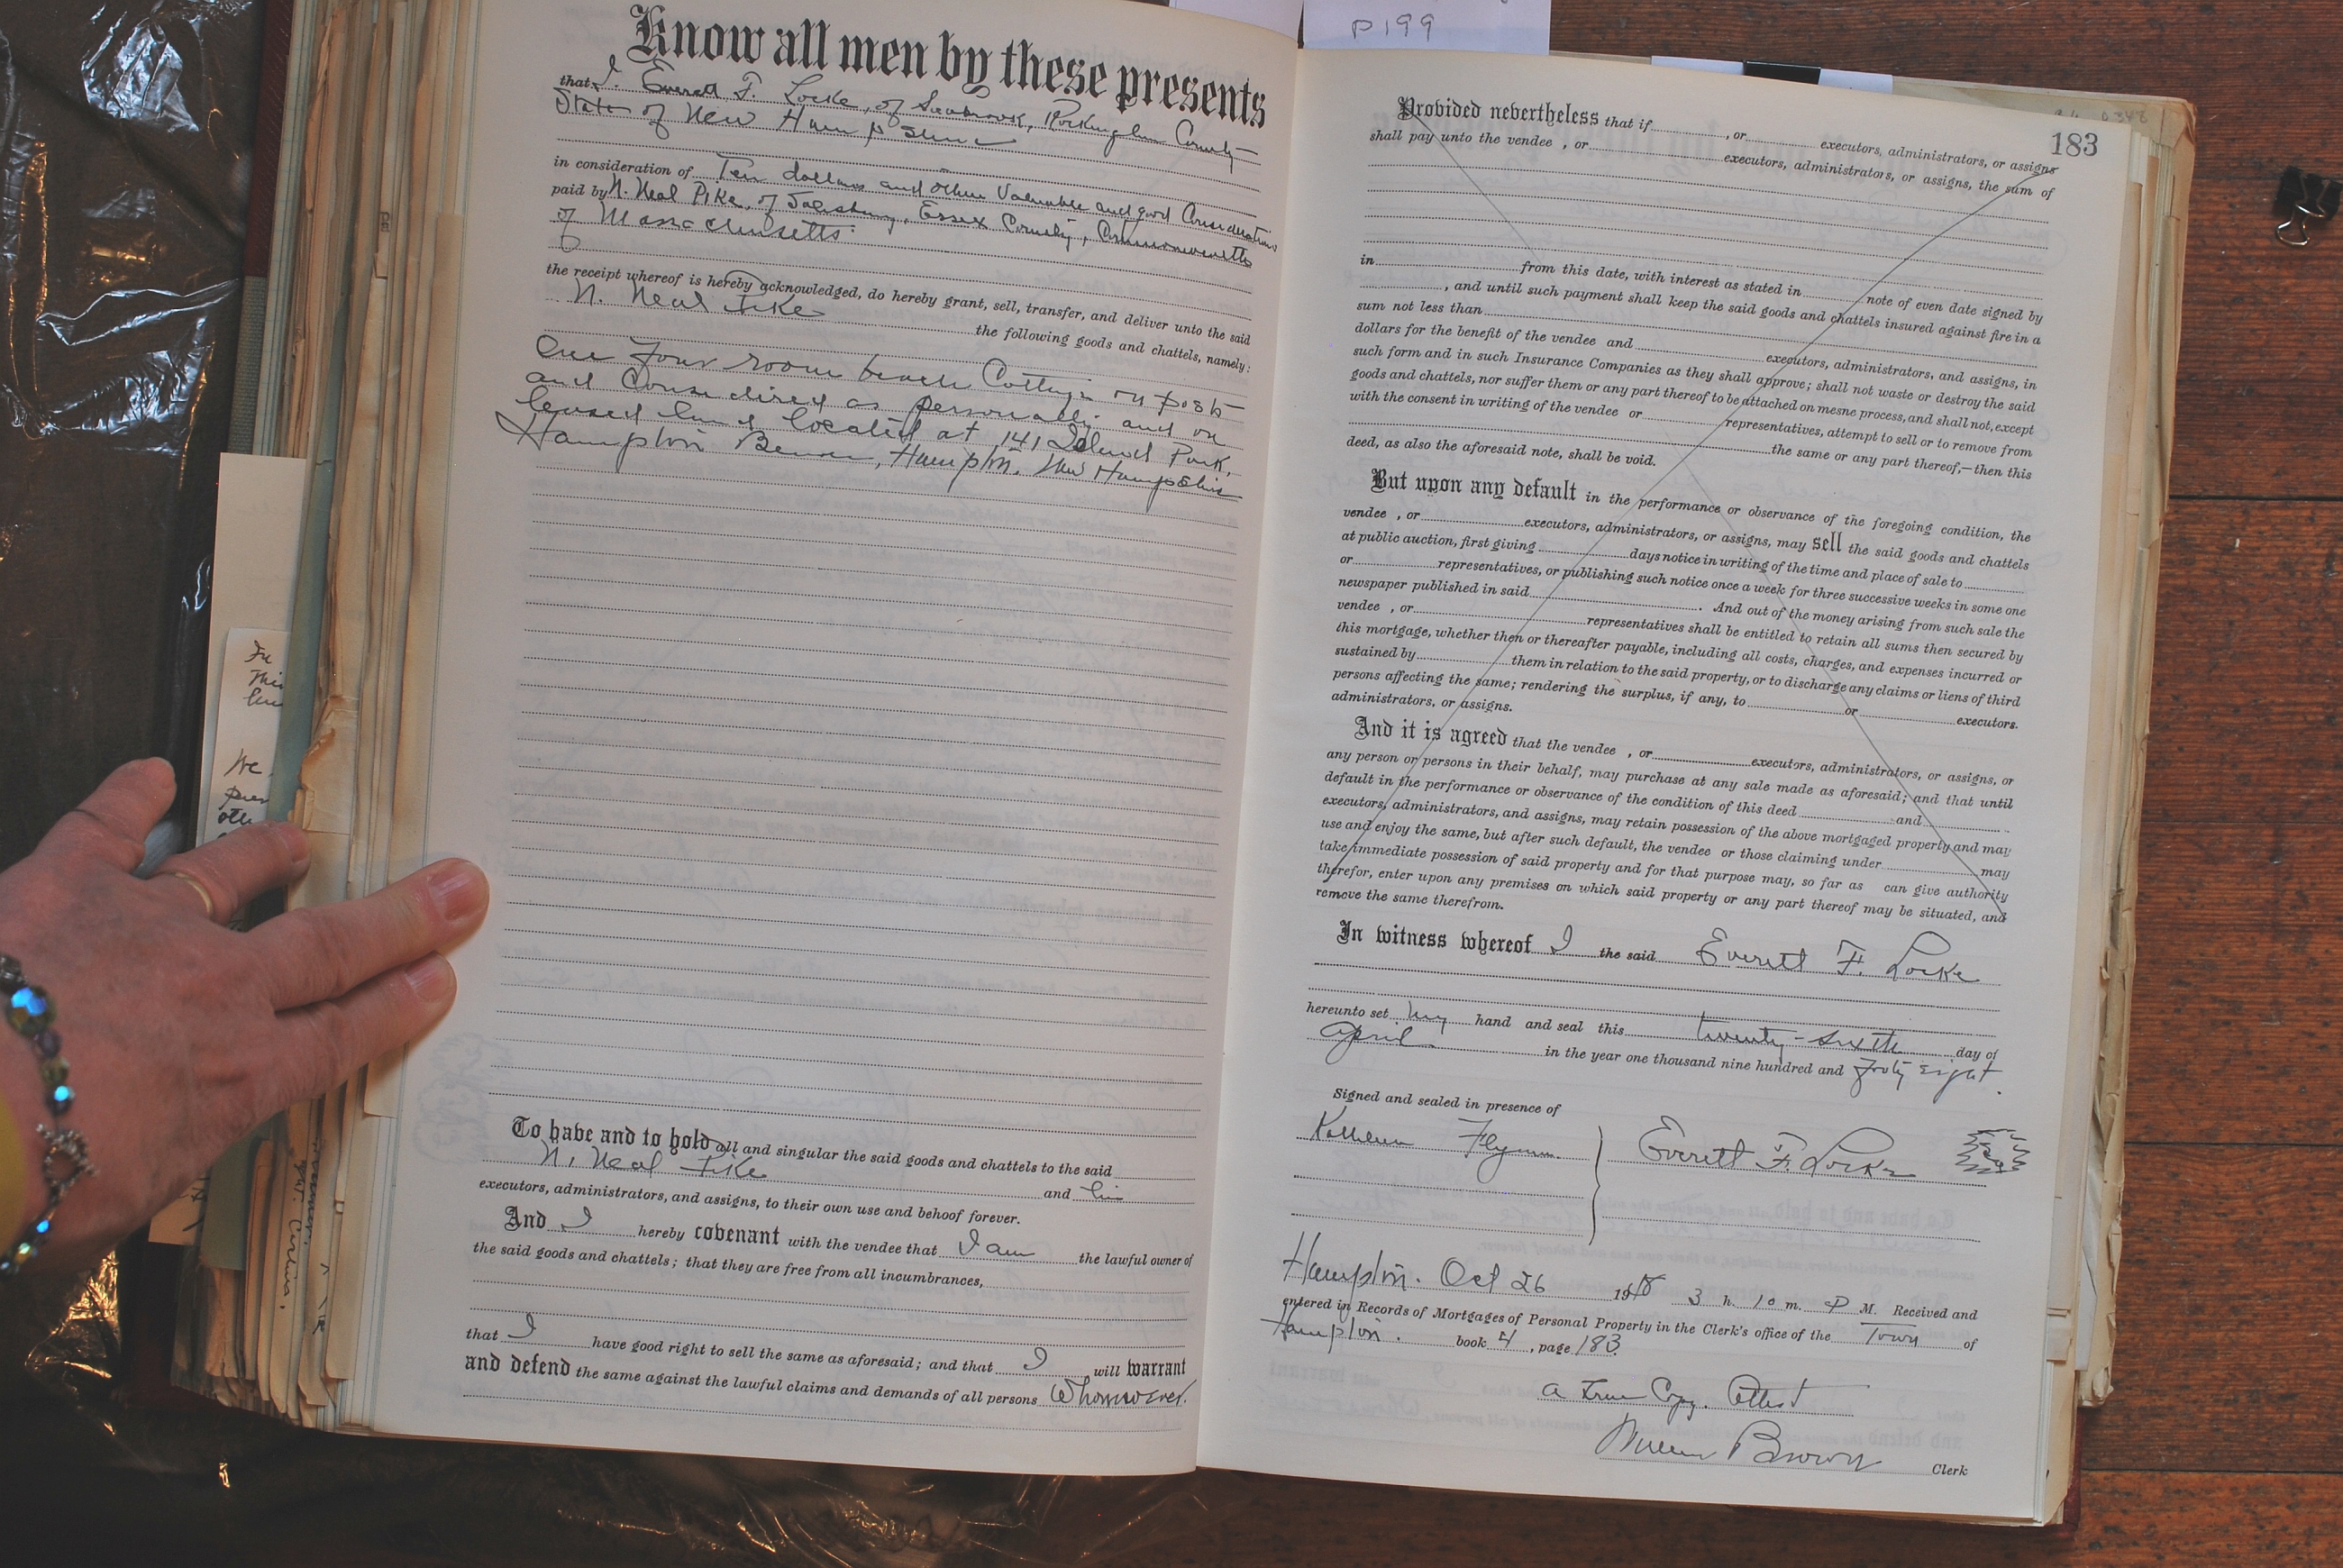 p199
Know all men by these presents
that I. Everett F. Locke, of Seabrook, Rockingham County
State of New Hampshire
in consideration of Ten dollars and other Valuable and good Considerations
paid by N. Neal Pike, of Salisbury, Essex County, Commonwealth
of Massachusetts
the receipt whereof is hereby acknowledged, do hereby grant, sell, transfer, and deliver unto the said
N. Neal Pike
the following goods and chattels, namely:
One four room beach Cottage on posts
and considered as personalty and on
leased land located at 141 Island Park,
Hampton Beach, Hampton, New Hampshire
To have and to hold all and singular the said goods and chattels to the said
N. Neal Pike and his
executors, administrators, and assigns, to their own use and behoof forever.
And I hereby covenant with the vendee that I am the lawful owner of
the said goods and chattels; that they are free from all incumbrances,
that I have good right to sell the same as aforesaid; and that I will warrant
and defend the same against the lawful claims and demands of all persons Whomsoever.
183
Provided nevertheless that if , or executors, administrators, or assigns
shall pay unto the vendee , or executors, administrators, or assigns, the sum of
in from this date, with interest as stated in note of even date signed by
, and until such payment shall keep the said goods and chattels insured against fire in a
sum not less than
dollars for the benefit of the vendee and executors, administrators, and assigns, in
such form and in such Insurance Companies as they shall approve; shall not waste or destroy the said
goods and chattels, nor suffer them or any part thereof to be attached on mesne process, and shall not, except
with the consent in writing of the vendee or representatives, attempt to sell or to remove from
the same or any part thereof,—then this
deed, as also the aforesaid note, shall be void.
But upon any default in the performance or observance of the foregoing condition, the
vendee , or executors, administrators, or assigns, may sell the said goods and chattels
at public auction, first giving days notice in writing of the time and place of sale to
or representatives, or publishing such notice once a week for three successive weeks in some one
newspaper published in said . And out of the money arising from such sale the
vendee , or representatives shall be entitled to retain all sums then secured by
this mortgage, whether then or thereafter payable, including all costs, charges, and expenses incurred or
sustained by them in relation to the said property, or to discharge any claims or liens of third
persons affecting the same; rendering the surplus, if any, to or executors.
administrators, or assigns.
And it is agreed that the vendee , or executors, administrators, or assigns, or
any person or persons in their behalf, may purchase at any sale made as aforesaid; and that until
default in the performance or observance of the condition of this deed and
executors, administrators, and assigns, may retain possession of the above mortgaged property and may
use and enjoy the same, but after such default, the vendee or those claiming under may
take immediate possession of said property and for that purpose may, so far as can give authority
therefor, enter upon any premises on which said property or any part thereof may be situated, and
remove the same therefrom.
In witness whereof I the said Everett F. Locke
hereunto set my hand and seal this twenty-sixth day of
April in the year one thousand nine hundred and forty eight.
Signed and sealed in presence of
Kathleen Flynn Everett F. Locke
Hampton. Oct 26 1948 3 h. 10 m. P M. Received and
entered in Records of Mortgages of Personal Property in the Clerk's office of the Town of
Hampton. book 4, page 183.
A True Copy. Attest
William Brown Clerk